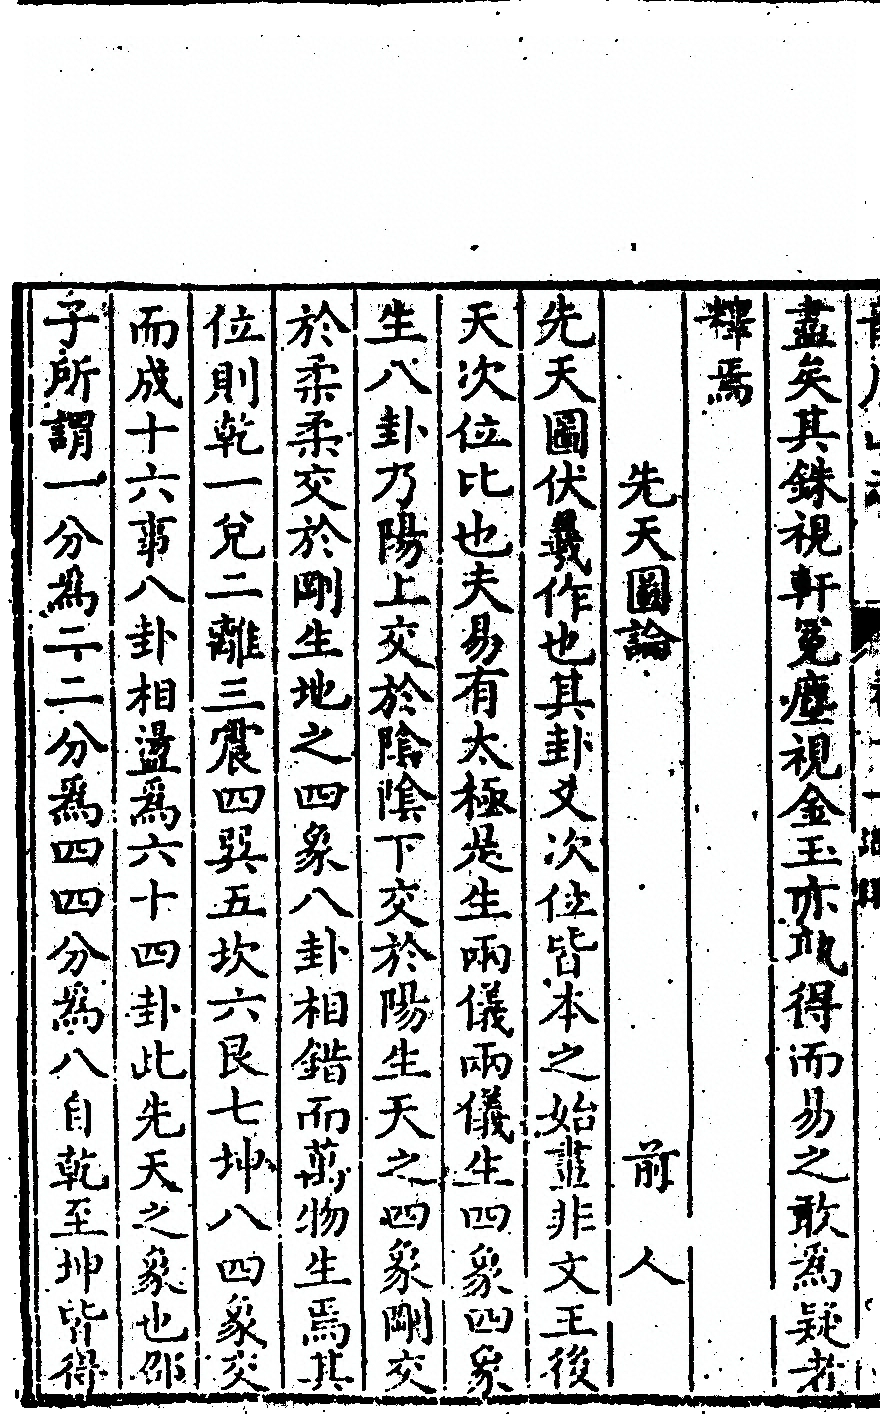 盡矣其銖視軒冕塵視金玉亦孰得而易之敢為疑者
釋焉
先天圖論　前人
先天圖伏羲作也其卦爻次位皆本之始畫非文王後
天次位比也夫易有太極是生兩儀兩儀生四象四象
生八卦乃陽上交於陰陰下交於陽生天之四象剛交
於柔柔交於剛生地之四象八卦相錯而萬物生焉其
位則乾一兌二離三震四巽五坎六艮七坤八四象交
而成十六事八卦相盪為六十四卦此先天之象也邵
子所謂一分為二二分為四四分為八自乾至坤皆得